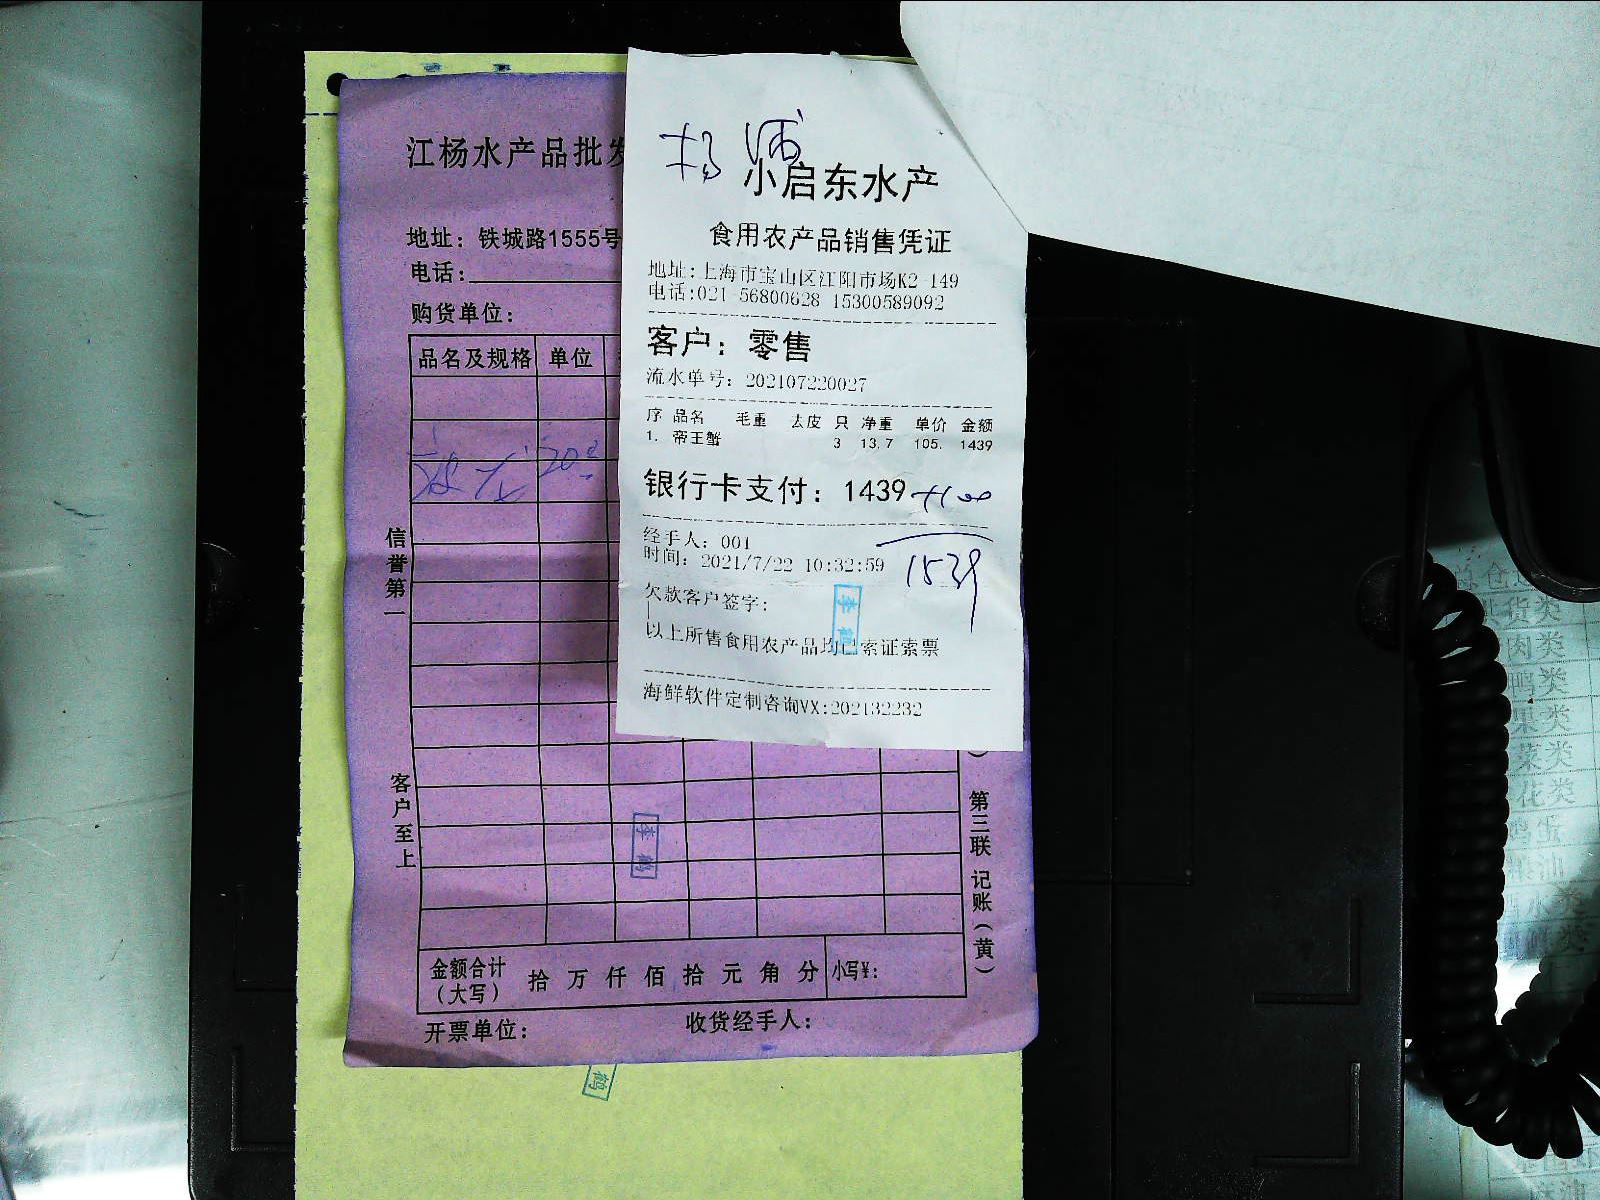 江杨水产品批发
地址：铁城路1555号
电话：
购货单位：
品名及规格 单位
波龙 20
信誉第一
客户至上
李鹤
第三联 记账（黄）
金额合计（大写） 拾 万 仟 佰 拾 元 角 分 小写¥：
开票单位： 收货经手人：
鹤
杨浦
小启东水产
食用农产品销售凭证
地址:上海市宝山区江阳市场K2-149
电话:021-56800628 15300589092
客户：零售
流水单号：202107220027
序 品名 毛重 去皮 只 净重 单价 金额
1. 帝王蟹 3 13.7 105. 1439
银行卡支付：1439 +100
1539
经手人：001
时间：2021/7/22 10:32:59
欠款客户签字：
李鹤
以上所售食用农产品均已索证索票
海鲜软件定制咨询VX:202132232
货类
肉类
鸭类
果类
菜类
花类